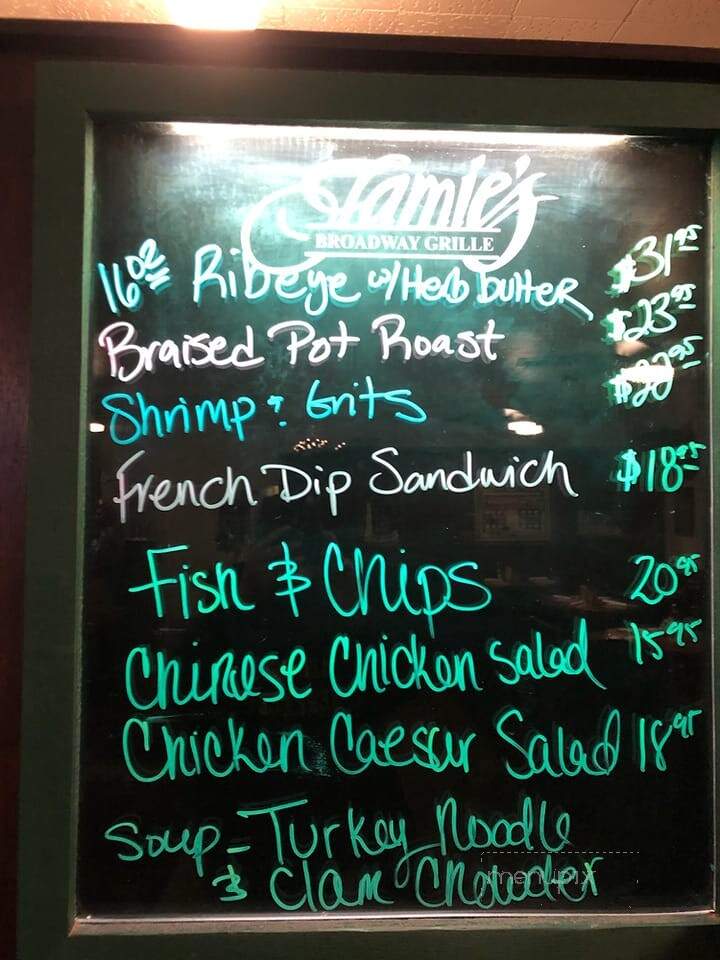 Jamie's
BROADWAY GRILLE
16oz Ribeye w/Herb butter $31.95
Braised Pot Roast $23.95
Shrimp & Grits
French Dip Sandwich $18.95
Fish & Chips 20.95
Chinese Chicken Salad 15.95
Chicken Caesar Salad 18.95
Soup - Turkey Noodle
& Clam Chowder
menupix